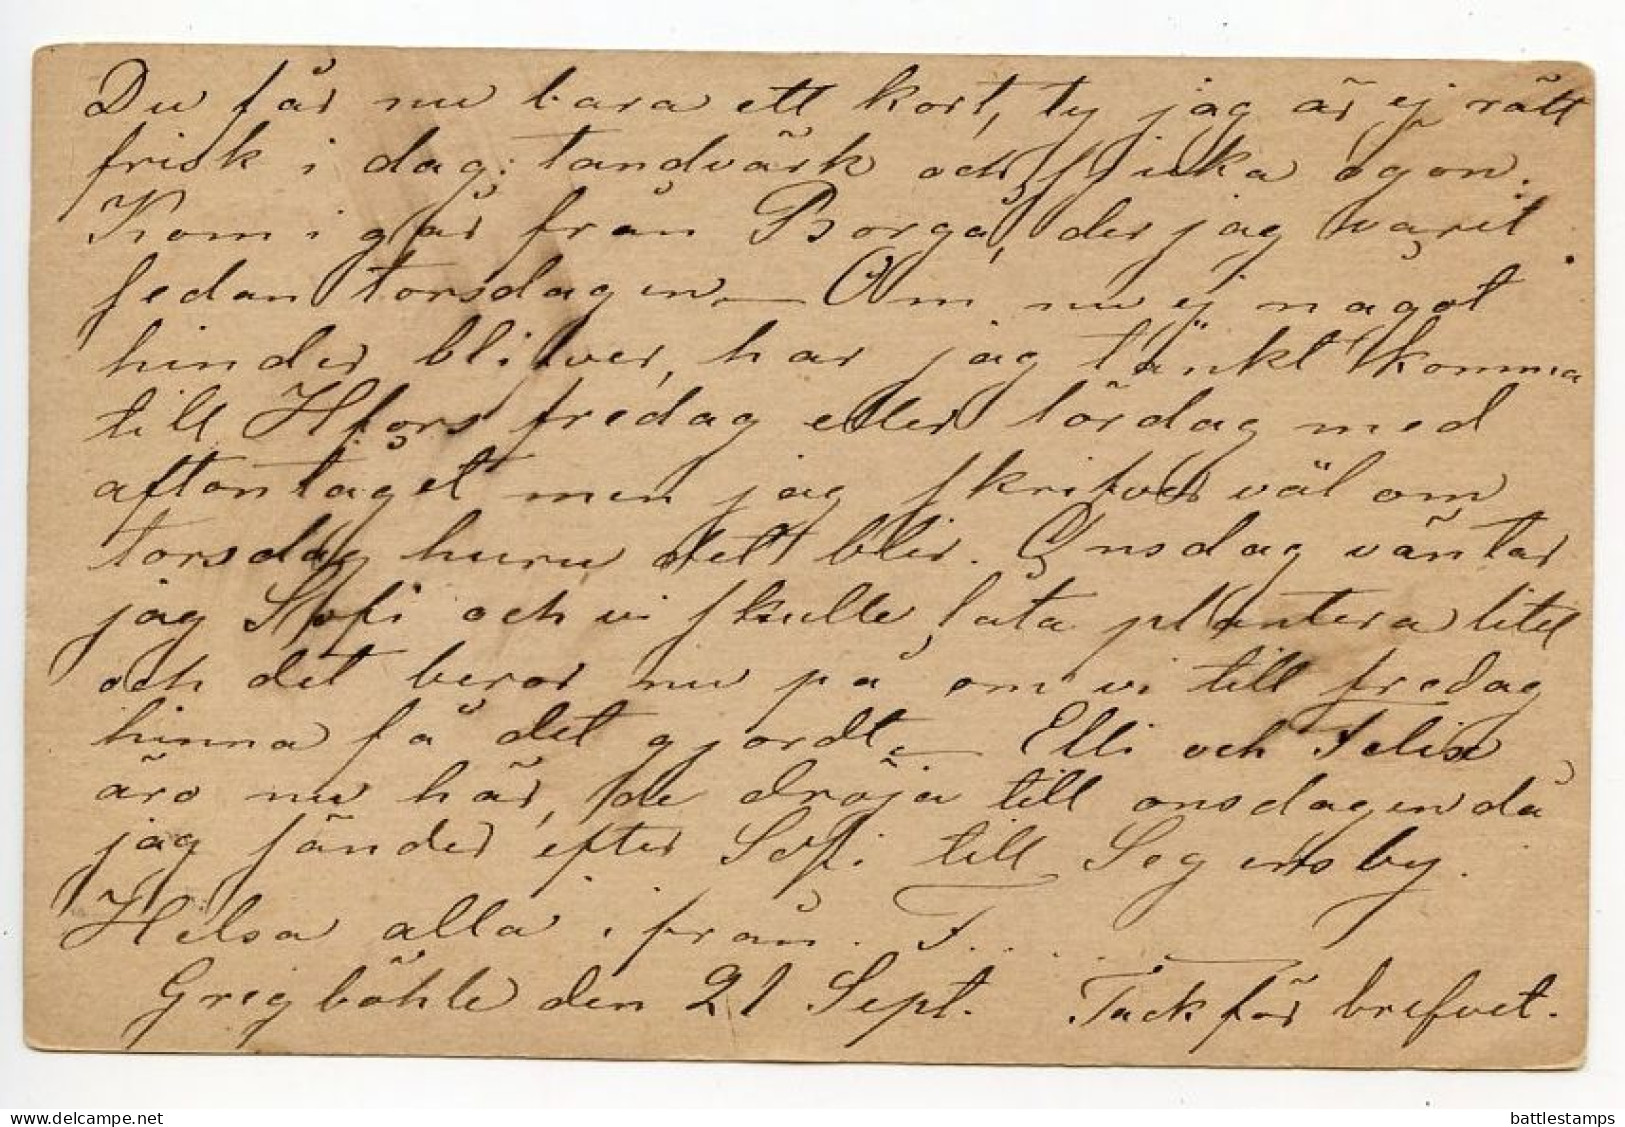 Du får nu bara ett kort, ty jag är ej rätt
frisk i dag: tandvärk och sjuka ögon.
Kom i går från Borgå, der jag varit
sedan torsdagen. — Om nu ej något
hinder blifver, har jag tänkt komma
till Hfors fredag eller lördag med
aftontåget men jag skrifver väl om
torsdag huru det blir. Onsdag väntar
jag Sofi och vi skulle låta plantera litet
och det beror nu på om vi till fredag
hinna få det gjordt. — Elli och Felix
äro nu här, de dröja till onsdagen då
jag sänder efter Sofi till Segersby.
Helsa alla ifrån. F.....
Grigböhle den 21 Sept. Tack för brefvet.
11/12/2023
battlestamps